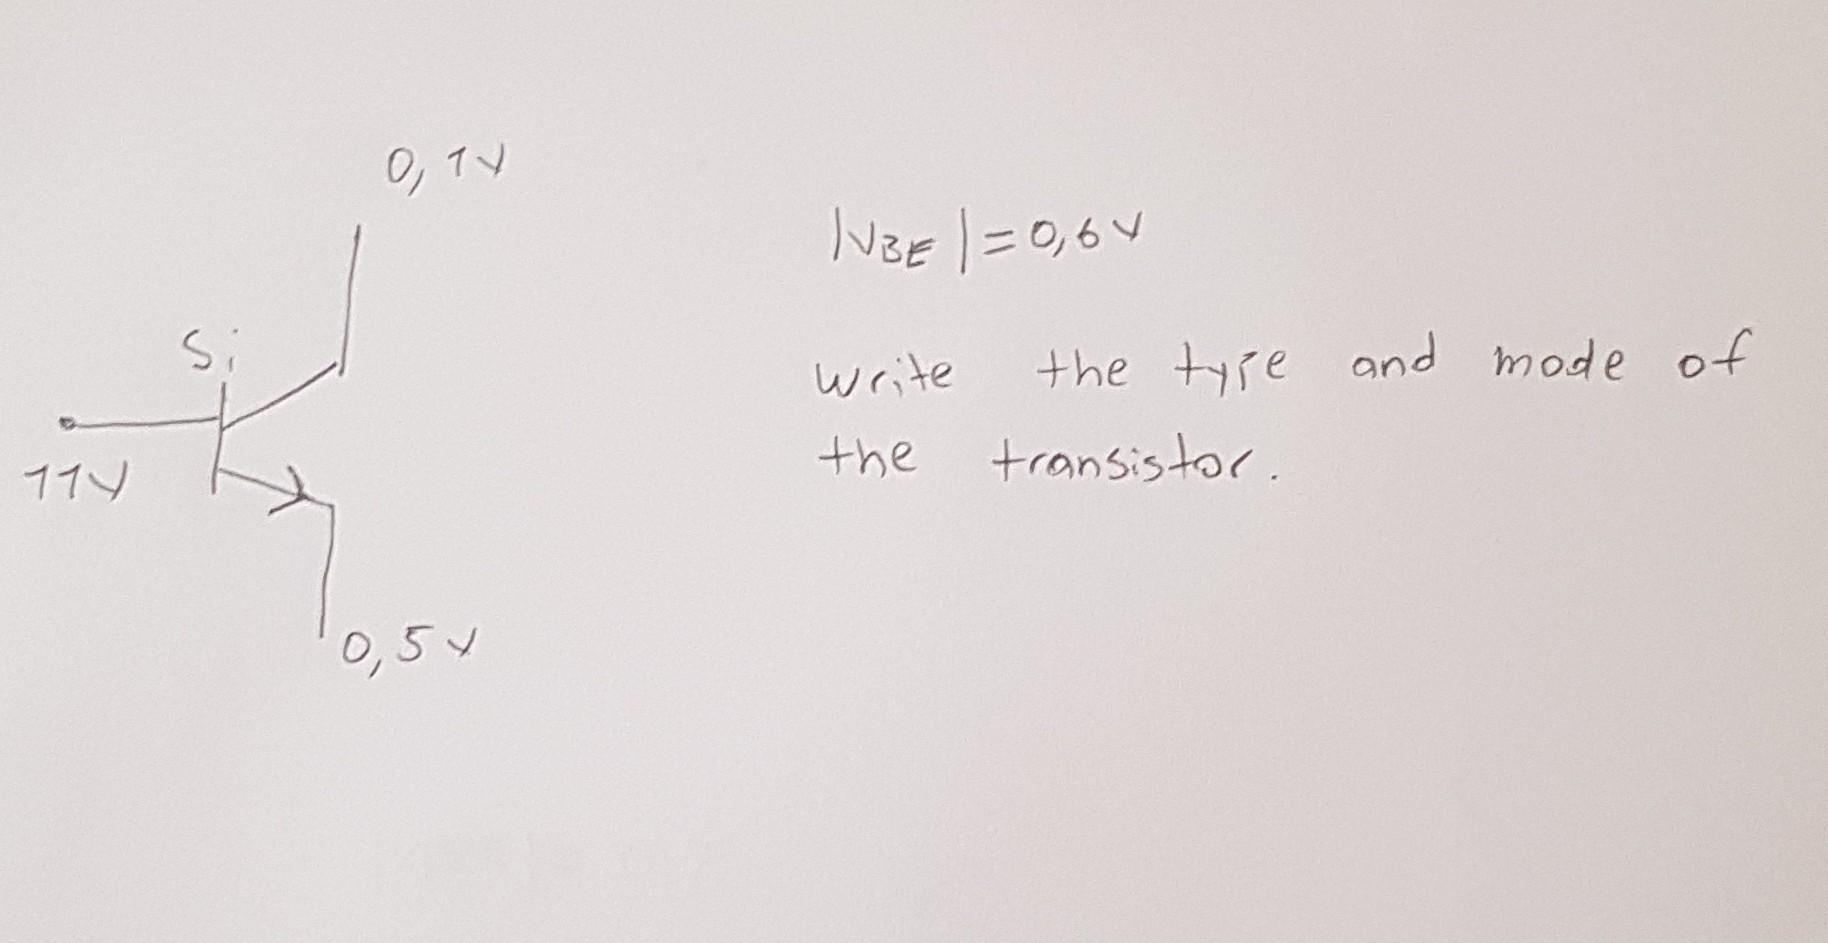 0,1V
|VBE| = 0,6V
Si
write the type and mode of
11V
the transistor.
0,5V